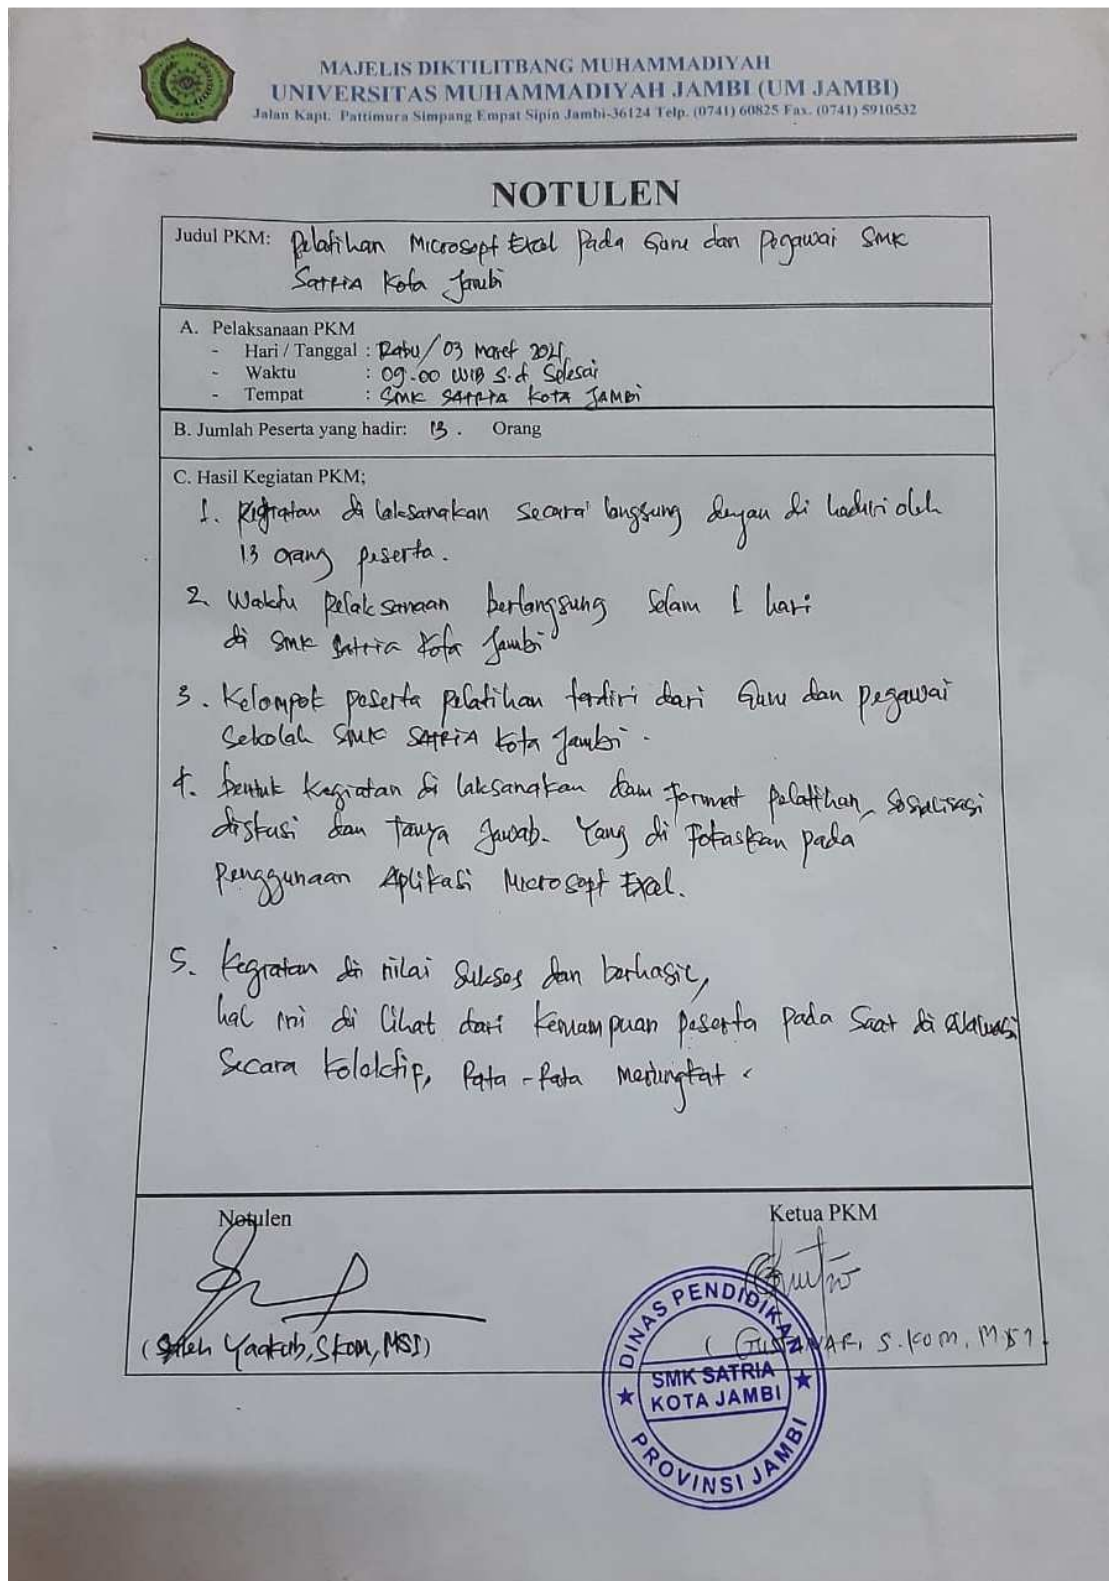 MAJELIS DIKTILITBANG MUHAMMADIYAH
UNIVERSITAS MUHAMMADIYAH JAMBI (UM JAMBI)
Jalan Kapt. Pattimura Simpang Empat Sipin Jambi-36124 Telp. (0741) 60825 Fax. (0741) 5910532
NOTULEN
Judul PKM: Pelatihan Microsopt Excel Pada Guru dan Pegawai SMK
SATRIA Kota Jambi
A. Pelaksanaan PKM
- Hari / Tanggal : Rabu/03 Maret 2021
- Waktu : 09.00 WIB s.d Selesai
- Tempat : SMK SATRIA KOTA JAMBI
B. Jumlah Peserta yang hadir: 13. Orang
C. Hasil Kegiatan PKM;
1. Kegiatan di laksanakan secara langsung dengan di hadiri oleh
13 orang peserta.
2. Waktu Pelaksanaan berlangsung Selam 1 hari
di SMK Satria Kota Jambi
3. Kelompok peserta pelatihan terdiri dari Guru dan pegawai
Sekolah SMK SATRIA Kota Jambi.
4. bentuk kegiatan di laksanakan dam format pelatihan, sosialisasi
diskusi dan tanya Jawab. Yang di Fokaskan pada
Penggunaan Aplikasi Microsopt Excel.
5. Kegiatan di nilai Sukses dan berhasil,
hal ini di lihat dari Kemampuan peserta pada Saat di evaluasi
Secara kolektif, Rata-Rata meningkat.
Notulen
Ketua PKM
(Saleh Yaakub, S.Kom, MSI)
(GUSTANAR, S.KOM, MSI)
DINAS PENDIDIKAN
SMK SATRIA
KOTA JAMBI
PROVINSI JAMBI